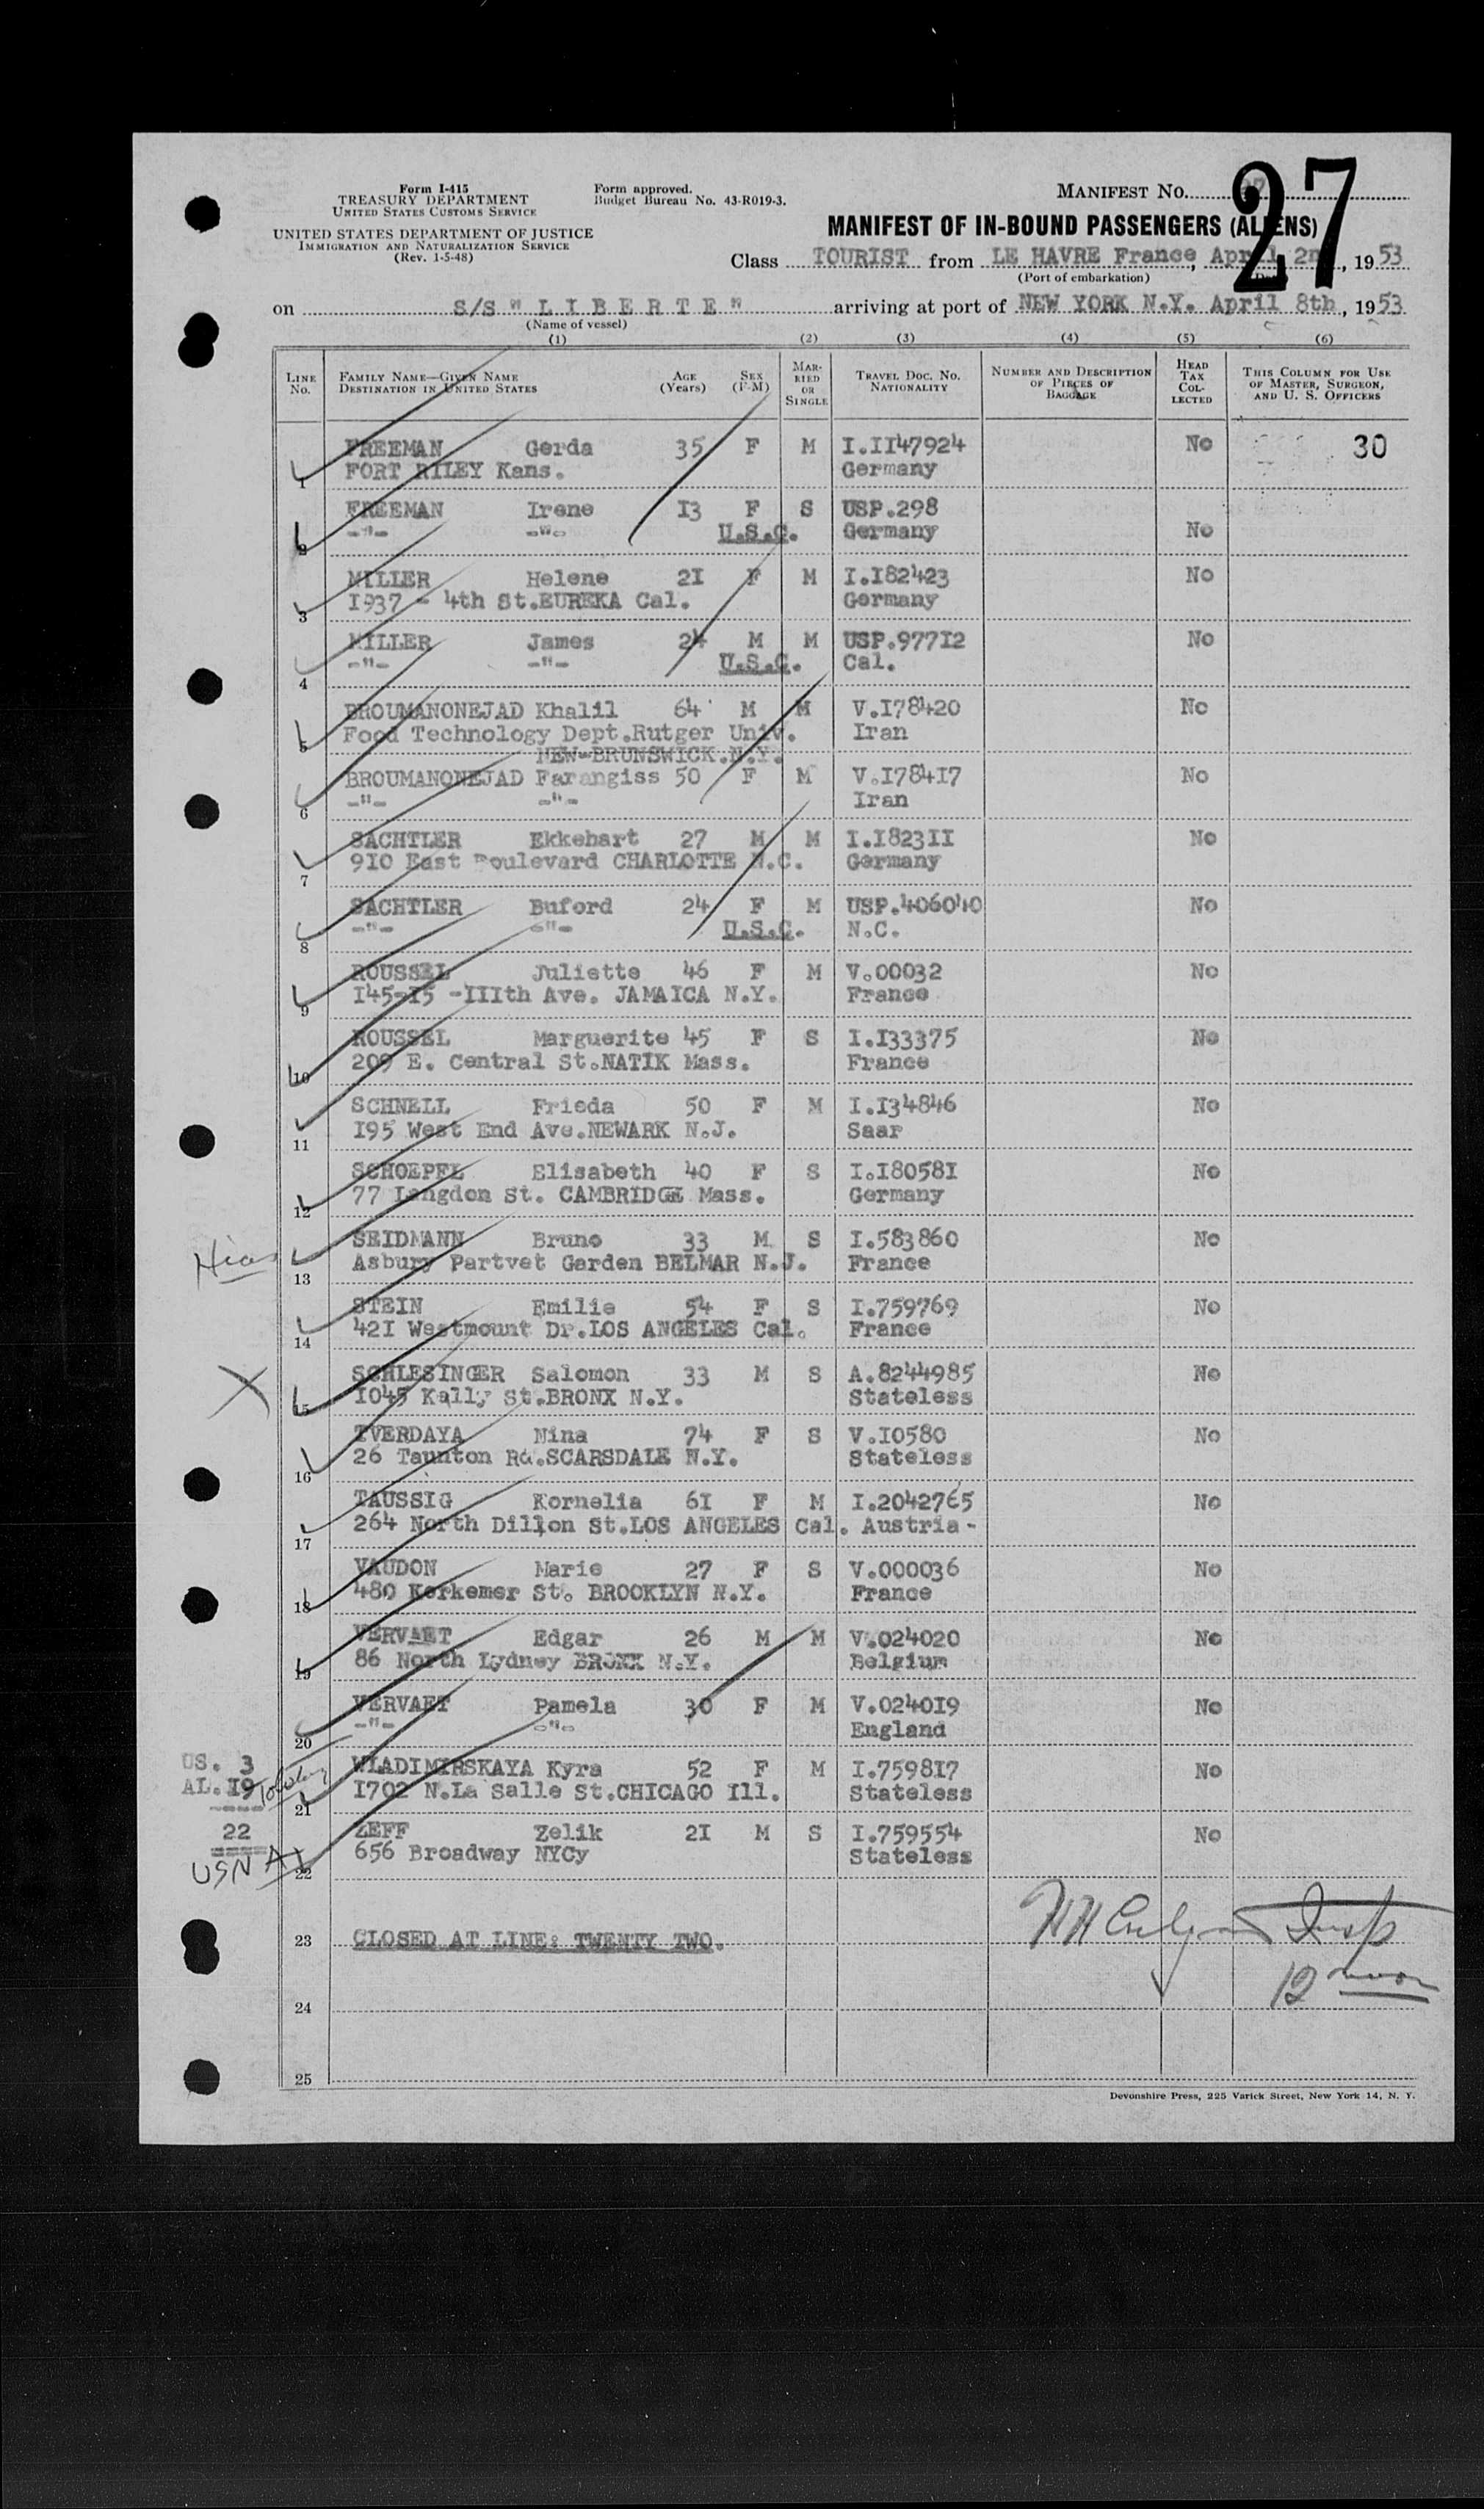 Form I-415
TREASURY DEPARTMENT
UNITED STATES CUSTOMS SERVICE
UNITED STATES DEPARTMENT OF JUSTICE
IMMIGRATION AND NATURALIZATION SERVICE
(Rev. 1-5-48)
Form approved.
Budget Bureau No. 43-R019-3.
MANIFEST NO. 27
MANIFEST OF IN-BOUND PASSENGERS (ALIENS)
Class TOURIST from LE HAVRE France, April 2nd, 1953
(Port of embarkation)
on S/S "LIBERTE" arriving at port of NEW YORK N.Y. April 8th, 1953
(Name of vessel)
(1) (2) (3) (4) (5) (6)
LINE No. FAMILY NAME—GIVEN NAME DESTINATION IN UNITED STATES AGE (Years) SEX (F-M) MARRIED OR SINGLE TRAVEL DOC. NO. NATIONALITY NUMBER AND DESCRIPTION OF PIECES OF BAGGAGE HEAD TAX COLLECTED THIS COLUMN FOR USE OF MASTER, SURGEON, AND U. S. OFFICERS
FREEMAN Gerda 35 F M I.II47924 No 30
1 FORT RILEY Kans. Germany
FREEMAN Irene 13 F S USP.298
2 -"- -"- U.S.C. Germany No
MILLER Helene 21 F M I.I82423 No
3 1937 - 4th St.EUREKA Cal. Germany
MILLER James 24 M M USP.97712 No
4 -"- -"- U.S.C. Cal.
BROUMANONEJAD Khalil 64 M M V.I78420 No
5 Food Technology Dept.Rutger Univ. Iran
NEW-BRUNSWICK.N.Y.
BROUMANONEJAD Farangiss 50 F M V.I78417 No
6 -"- -"- Iran
SACHTLER Ekkehart 27 M M I.I82311 No
7 910 East Boulevard CHARLOTTE N.C. Germany
SACHTLER Buford 24 F M USP.406040 No
8 -"- -"- U.S.C. N.C.
ROUSSEL Juliette 46 F M V.00032 No
9 145-15 -IIIth Ave. JAMAICA N.Y. France
ROUSSEL Marguerite 45 F S I.I33375 No
10 209 E. Central St.NATIK Mass. France
SCHNELL Frieda 50 F M I.I34846 No
11 195 West End Ave.NEWARK N.J. Saar
SCHOEPFL Elisabeth 40 F S I.I80581 No
12 77 Langdon St. CAMBRIDGE Mass. Germany
Hias SEIDMANN Bruno 33 M S I.583860 No
13 Asbury Partvet Garden BELMAR N.J. France
STEIN Emilie 54 F S I.759769 No
14 421 Westmount Dr.LOS ANGELES Cal. France
X SCHLESINGER Salomon 33 M S A.8244985 No
15 1045 Kally St.BRONX N.Y. Stateless
TVERDAYA Nina 74 F S V.10580 No
16 26 Taunton Rd.SCARSDALE N.Y. Stateless
TAUSSIG Kornelia 61 F M I.2042765 No
17 264 North Dillon St.LOS ANGELES Cal. Austria -
VAUDON Marie 27 F S V.000036 No
18 480 Kerkemer St. BROOKLYN N.Y. France
VERVAET Edgar 26 M M V.024020 No
19 86 North Lydney BRONX N.Y. Belgium
VERVAET Pamela 30 F M V.024019 No
20 -"- -"- England
US. 3 WLADIMIRSKAYA Kyra 52 F M I.759817 No
AL. 19 21 1702 N.La Salle St.CHICAGO Ill. Stateless
22 ZEFF Zelik 21 M S I.759554 No
USNA 22 656 Broadway NYCy Stateless
23 CLOSED AT LINE: TWENTY TWO.
Insp
12 noon
24
25
Devonshire Press, 225 Varick Street, New York 14, N. Y.